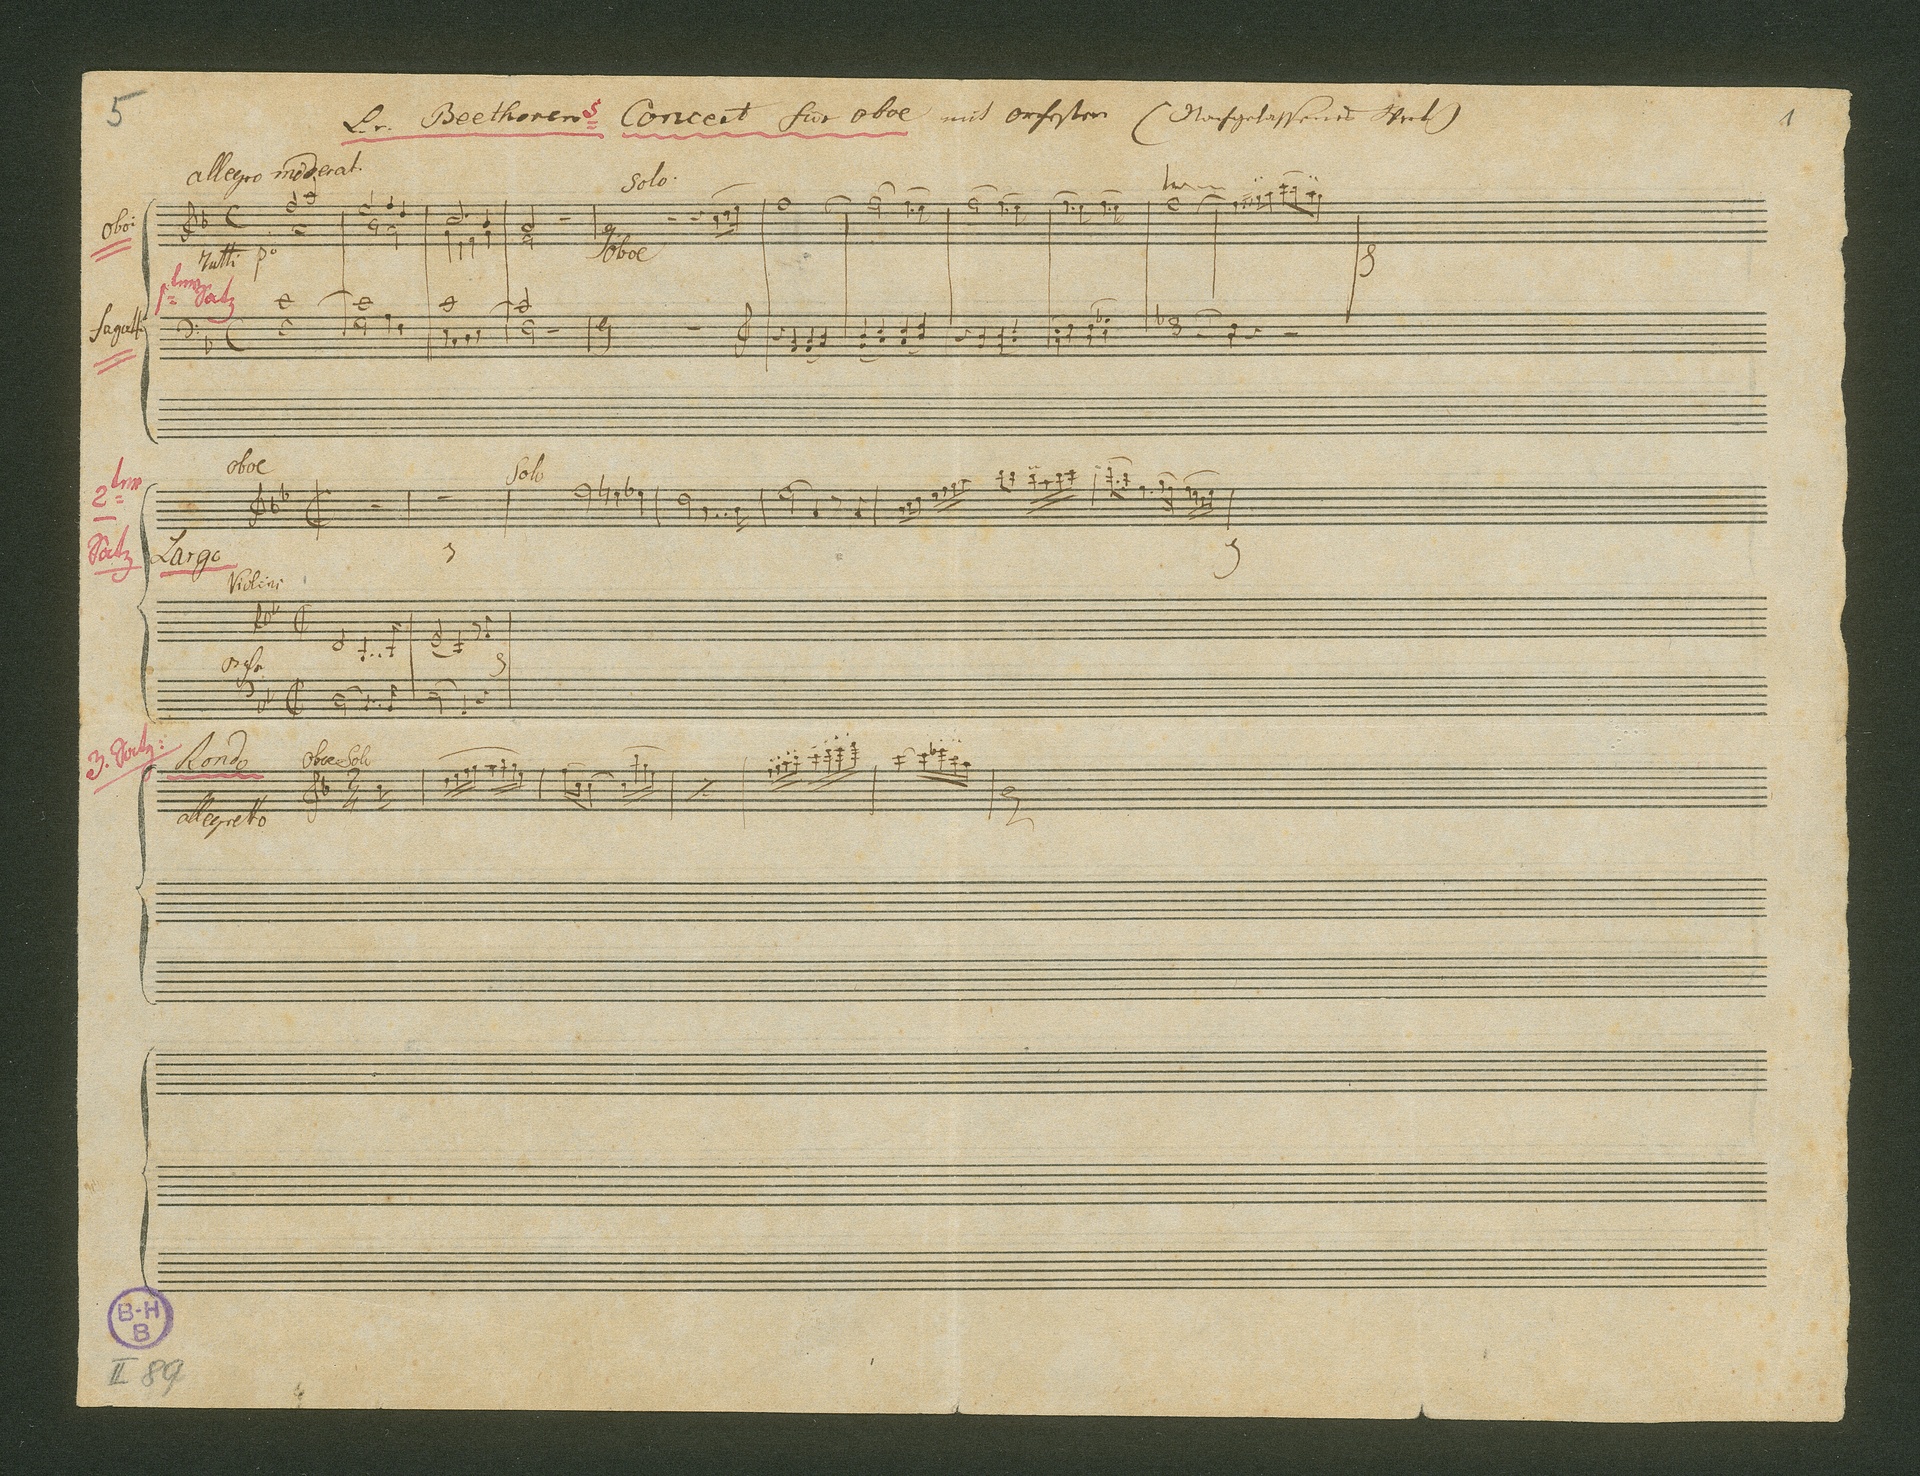 5
L. v. Beethovens Concert für oboe mit orchester (Nachgelassenes Werk) 1
allegro moderat.
Solo.
oboi
Tutti po
oboe
1ter Satz
fagotti
oboe
Solo
2ter
Satz
Largo
Violini
3. Satz:
Rondo
oboe Solo
allegretto
B-H
B
II 89